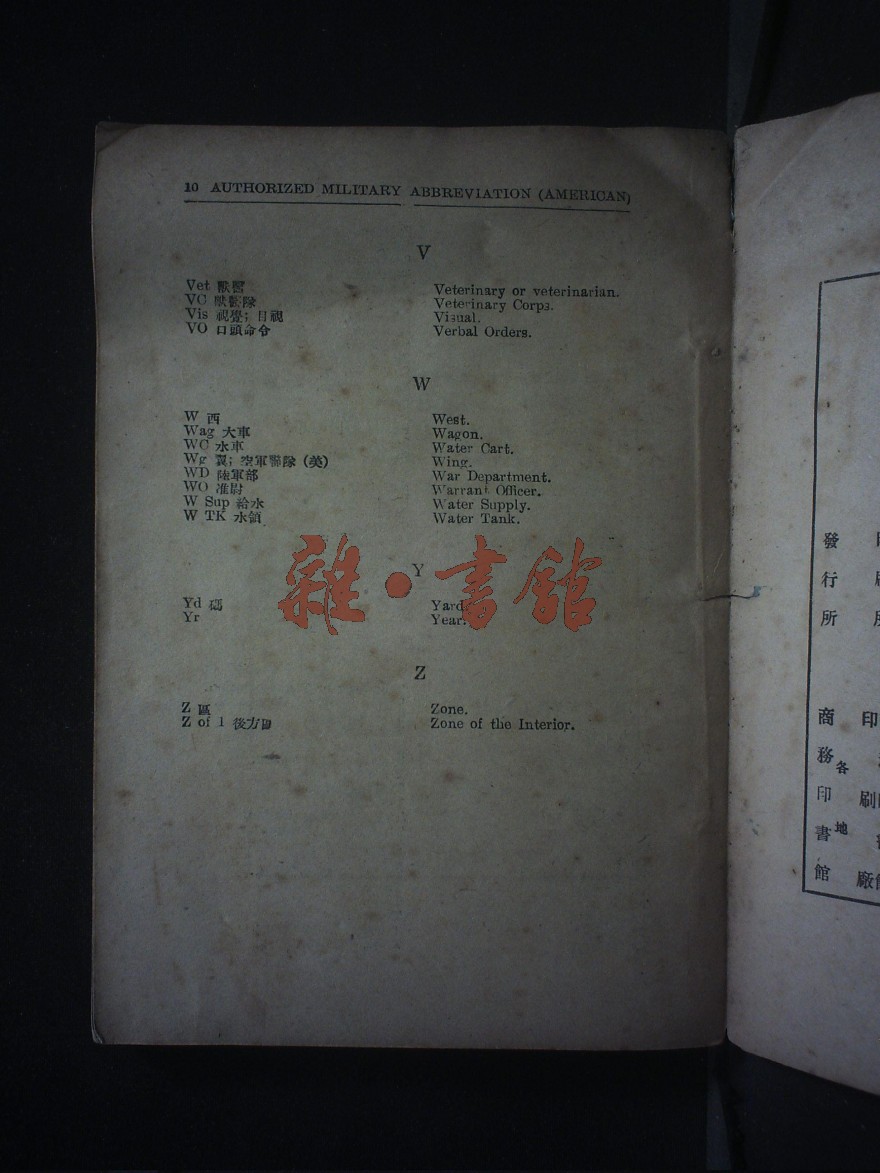 10 AUTHORIZED MILITARY ABBREVIATION (AMERICAN)
V
Vet 獸醫 Veterinary or veterinarian.
VC 獸醫隊 Veterinary Corps.
Vis 視覺; 目視 Visual.
VO 口頭命令 Verbal Orders.
W
W 西 West.
Wag 大車 Wagon.
WC 水車 Water Cart.
Wg 翼; 空軍聯隊 (美) Wing.
WD 陸軍部 War Department.
WO 准尉 Warrant Officer.
W Sup 給水 Water Supply.
W TK 水領 Water Tank.
Y
Yd 碼 Yard.
Yr Year.
Z
Z 區 Zone.
Z of 1 後方區 Zone of the Interior.
雜·書館
發行所
商務印書館
各地
印刷
廠